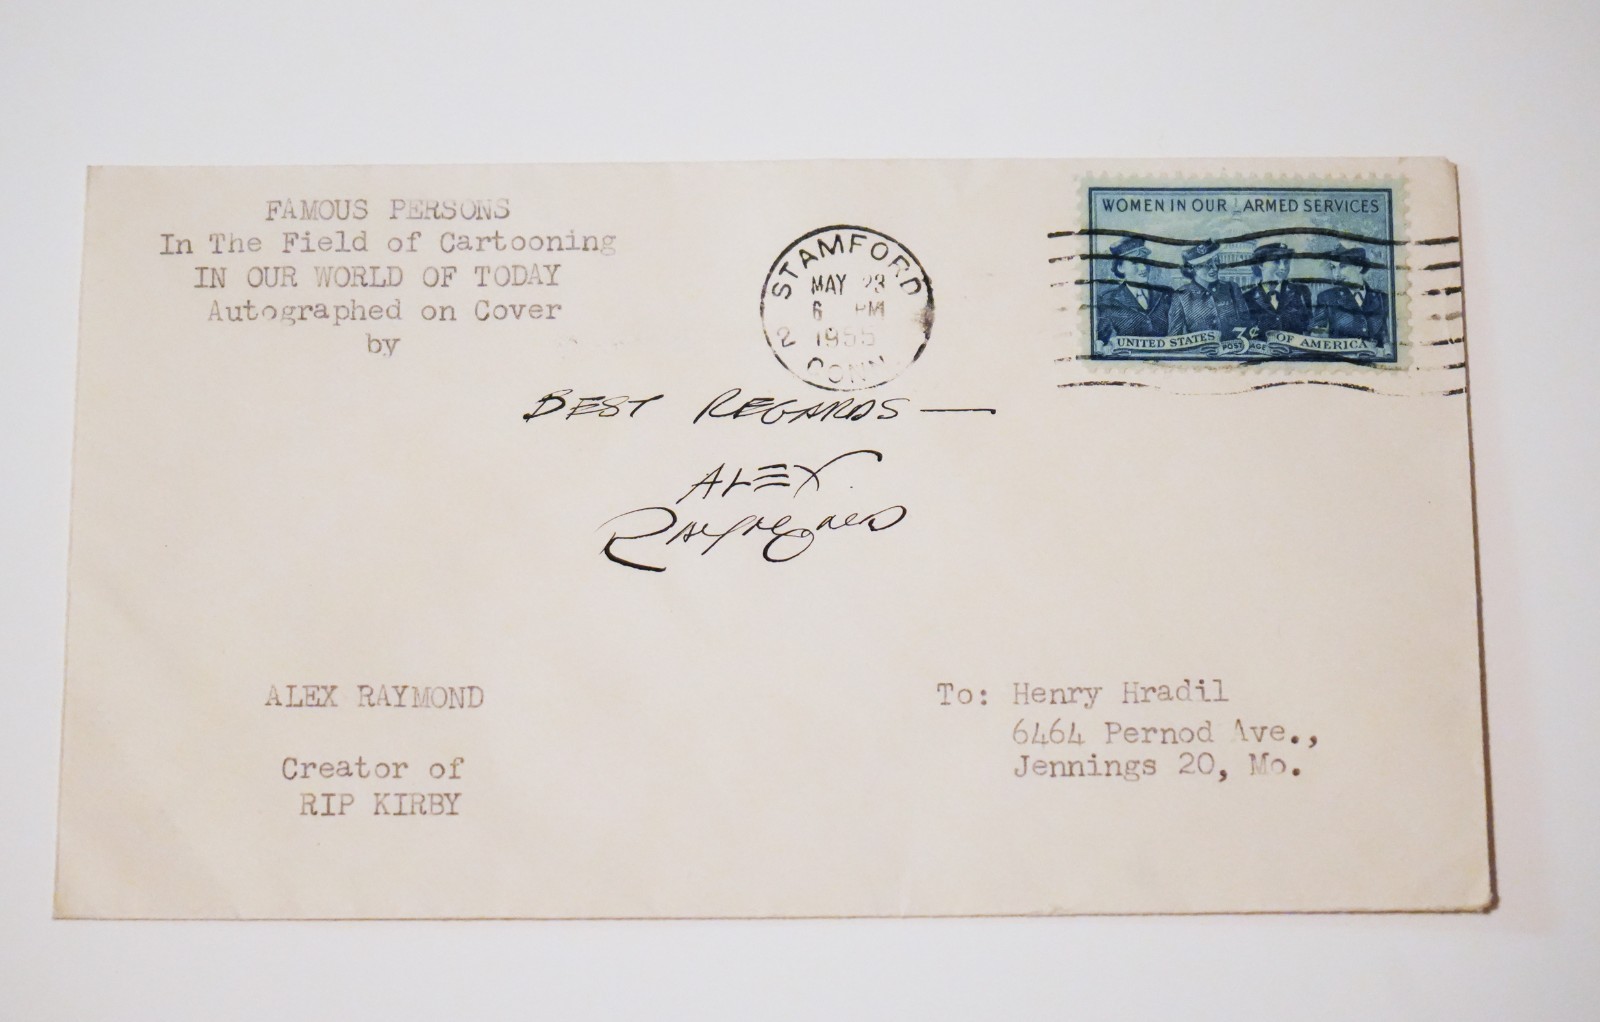 FAMOUS PERSONS
In The Field of Cartooning
IN OUR WORLD OF TODAY
Autographed on Cover
by
STAMFORD
MAY 23
6 PM
2 1955
CONN
WOMEN IN OUR ARMED SERVICES
UNITED STATES 3¢ OF AMERICA
POSTAGE
BEST REGARDS —
ALEX
RAYMOND
ALEX RAYMOND
Creator of
RIP KIRBY
To: Henry Hradil
6464 Pernod Ave.,
Jennings 20, Mo.